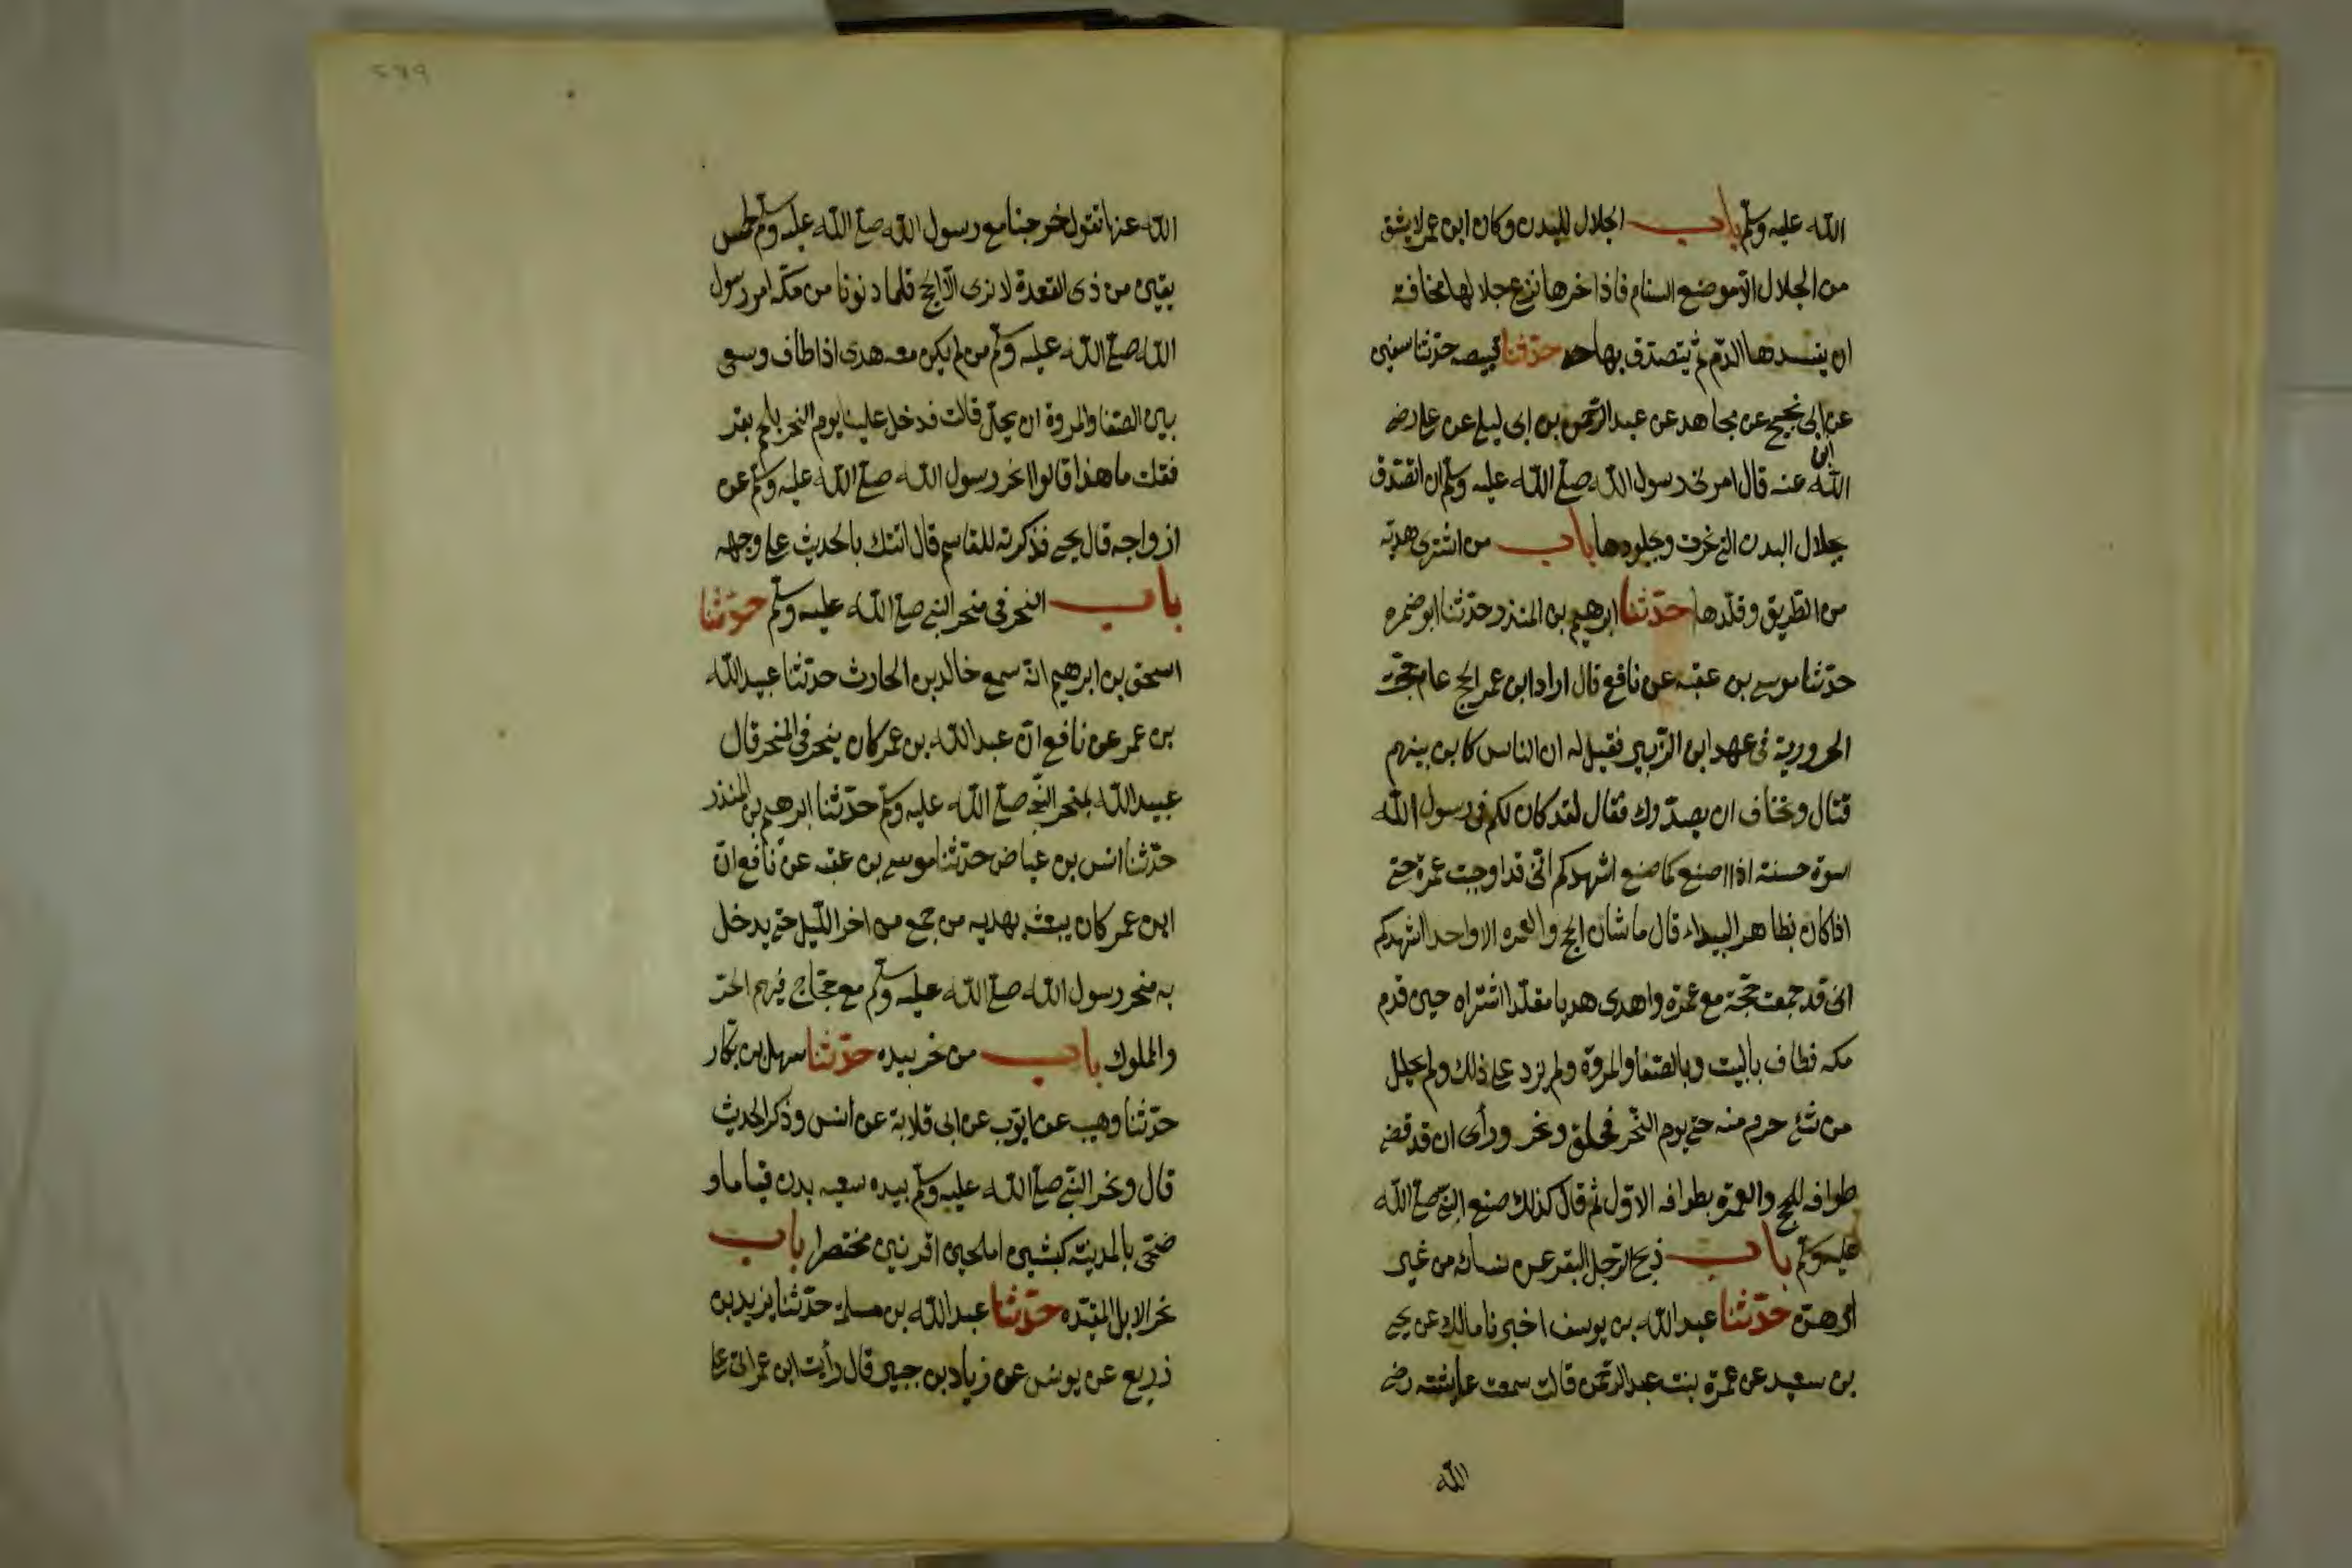 الله عليه وسلم باب الجلال للبدن وكان ابن عمر لا يشق
من الجلال الا موضع السنام فاذا نحرها نزع جلالها مخافة
ان يفسدها الدم ثم يتصدق بها حدثنا قبيصه حدثنا سفين
عن ابن ابى نجيح عن مجاهد عن عبد الرحمن بن ابى ليلى عن على رضى
الله عنه قال امرنى رسول الله صلى الله عليه وسلم ان اتصدق
بجلال البدن التى نحرت وبجلودها باب من اشترى هديه
من الطريق وقلدها حدثنا ابرهيم بن المنذر حدثنا ابو ضمره
حدثنا موسى بن عقبه عن نافع قال اراد ابن عمر الحج عام حجت
الحرورية فى عهد ابن الزبير فقيل له ان الناس كاين بينهم
قتال ونخاف ان يصدوك فقال لقد كان لكم فى رسول الله
اسوة حسنة اذا اصنع كما صنع اشهدكم انى قد اوجبت عمرة حتى
اذا كان بظاهر البيداء قال ما شان الحج والعمره الا واحد اشهدكم
انى قد جمعت حجة مع عمرة واهدى هديا مقلدا اشتراه حين قدم
مكه فطاف بالبيت وبالصفا والمروة ولم يزد على ذلك ولم يحلل
من شئ حرم منه حتى يوم النحر فحلق ونحر ورأى ان قد قضى
طوافه للحج والعمرة بطوافه الاول ثم قال كذلك صنع النبى صلى الله
عليه وسلم باب ذبح الرجل البقر عن نسائه من غير
امرهن حدثنا عبد الله بن يوسف اخبرنا مالك عن يحيى
بن سعيد عن عمرة بنت عبد الرحمن قالت سمعت عايشه رضى
الله
٥٨٩
الله عنها تقول خرجنا مع رسول الله صلى الله عليه وسلم لخمس
بقين من ذى القعدة لا نرى الا الحج فلما دنونا من مكه امر رسول
الله صلى الله عليه وسلم من لم يكن معه هدى اذا طاف وسعى
بين الصفا والمروة ان يحل قالت فدخل علينا يوم النحر بلحم بقر
فقلت ما هذا قالوا نحر رسول الله صلى الله عليه وسلم عن
ازواجه قال يحيى فذكرته للقاسم قال اتتك بالحديث على وجهه
باب النحر فى منحر النبى صلى الله عليه وسلم حدثنا
اسحق بن ابرهيم انه سمع خالد بن الحارث حدثنا عبيد الله
بن عمر عن نافع ان عبد الله بن عمر كان ينحر فى المنحر قال
عبيد الله بمنحر النبى صلى الله عليه وسلم حدثنا ابرهيم بن المنذر
حدثنا انس بن عياض حدثنا موسى بن عقبه عن نافع ان
ابن عمر كان يبعث بهديه من جمع من اخر الليل حتى يدخل
به منحر رسول الله صلى الله عليه وسلم مع حجاج فيهم الحر
والمملوك باب من نحر بيده حدثنا سهل بن بكار
حدثنا وهيب عن ايوب عن ابى قلابة عن انس وذكر الحديث
قال ونحر النبى صلى الله عليه وسلم بيده سبعه بدن قياما و
ضحى بالمدينة كبشين املحين اقرنين مختصرا باب
نحر الابل المقيده حدثنا عبد الله بن مسلمة حدثنا يزيد بن
زريع عن يونس عن زياد بن جبير قال رأيت ابن عمر اتى على